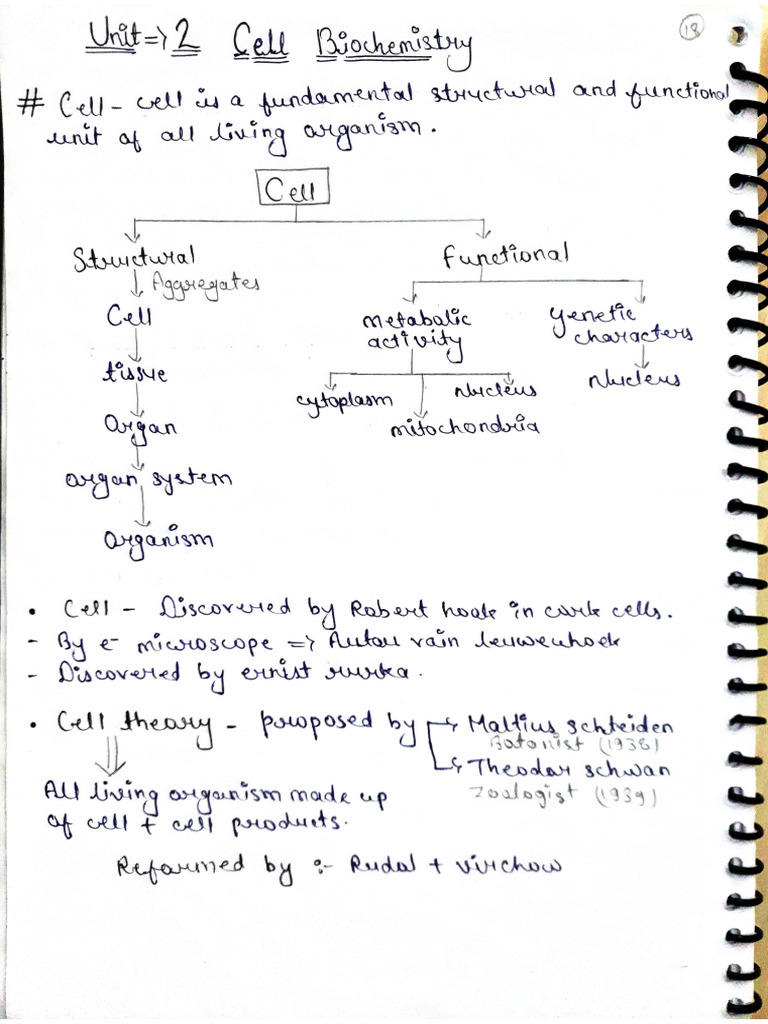 18
Unit => 2 Cell Biochemistry
# Cell - cell is a fundamental structural and functional
unit of all living organism.
Cell
Structural
Functional
Aggregates
Cell
metabolic
activity
genetic
characters
tissue
cytoplasm
Nucleus
Nucleus
mitochondria
Organ
organ system
organism
• Cell - Discovered by Robert hook in cork cells.
- By e- microscope => Antou vain leuwenhoek
- Discovered by ernist rurka.
• Cell theory - proposed by
Maltius schteiden
Botonist (1938)
Theodor schwan
Zoologist (1939)
All living organism made up
of cell + cell products.
Reformed by :- Rudol + virchow